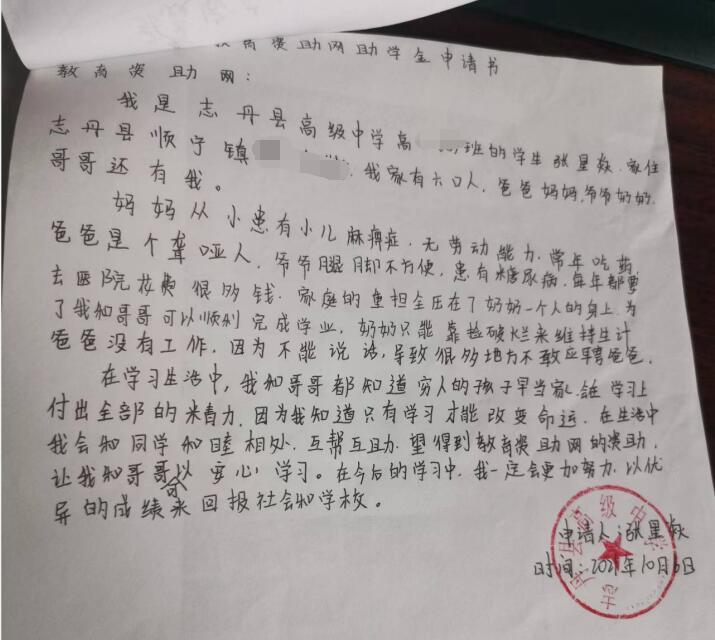 教育资助网助学金申请书
教育资助网：
我是志丹县高级中学高 班的学生张星焱.家住
志丹县顺宁镇 .我家有六口人，爸爸妈妈，爷爷奶奶.
哥哥还有我。
妈妈从小患有小儿麻痹症.无劳动能力.常年吃药.
爸爸是个聋哑人.爷爷腿脚不方便，患有糖尿病.每年都要
去医院花费很多钱.家庭的重担全压在了奶奶一个人的身上.为
了我和哥哥可以顺利完成学业，奶奶只能靠捡破烂来维持生计
爸爸没有工作，因为不能说话，导致很多地方不敢应聘爸爸.
在学习生活中，我和哥哥都知道穷人的孩子早当家.在学习上
付出全部的精力.因为我知道只有学习才能改变命运.在生活中
我会和同学和睦相处.互帮互助.望得到教育资助网的资助.
让我和哥哥可以安心学习。在今后的学习中.我一定会更加努力.以优
异的成绩来回报社会和学校。
申请人：张星焱
时间：2021年10月6日
志丹县高级中学